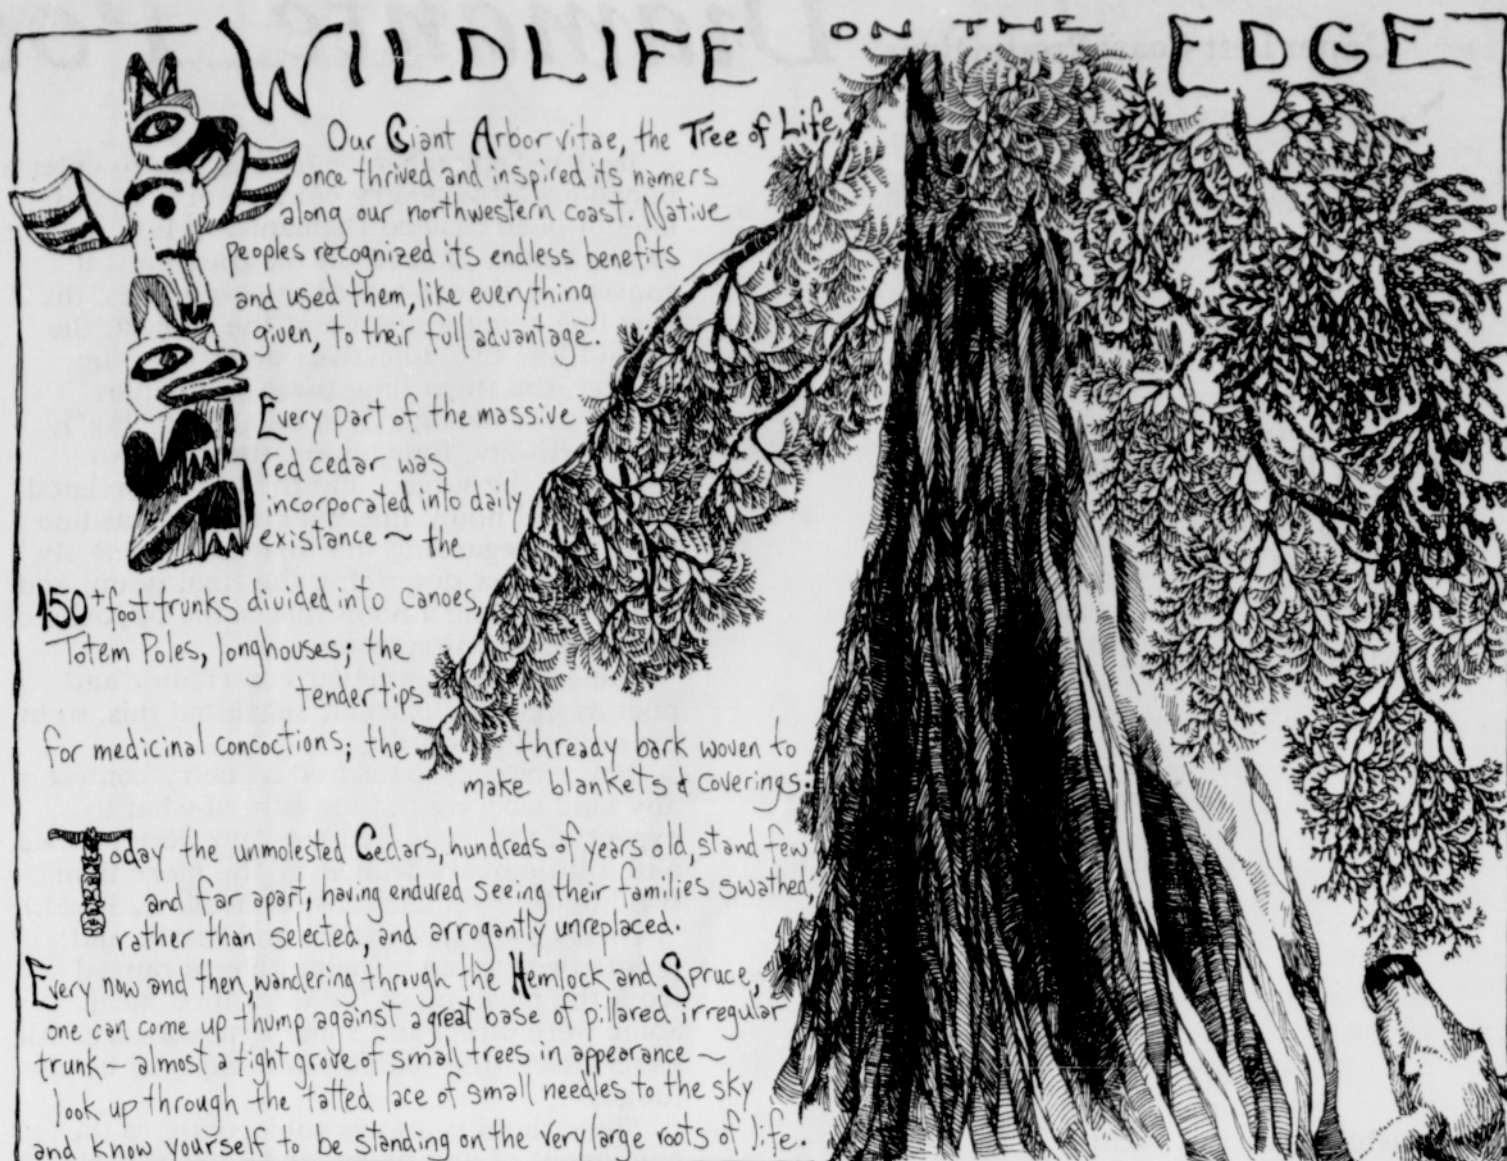 WILDLIFE ON THE EDGE
Our Giant Arborvitae, the Tree of Life,
once thrived and inspired its namers
along our northwestern coast. Native
peoples recognized its endless benefits
and used them, like everything
given, to their full advantage.
Every part of the massive
red cedar was
incorporated into daily
existance ~ the
150+ foot trunks divided into canoes,
Totem Poles, longhouses; the
tender tips
for medicinal concoctions; the thready bark woven to
make blankets & coverings.
Today the unmolested Cedars, hundreds of years old, stand few
and far apart, having endured seeing their families swathed,
rather than selected, and arrogantly unreplaced.
Every now and then, wandering through the Hemlock and Spruce,
one can come up thump against a great base of pillared irregular
trunk ~ almost a tight grove of small trees in appearance ~
look up through the tatted lace of small needles to the sky
and know yourself to be standing on the very large roots of life.